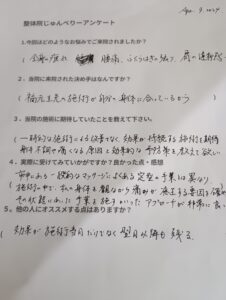 Apr. 9. 2024
整体院じゅんべりーアンケート
1.今回はどのようなお悩みでご来院されましたか?
( 全身の疲れ 腰痛、ふくらはぎの張り、肩の違和感
2、当院に来院された決め手はなんですか?
( 福元先生の施術が自分の身体に合っているから )
3、当院の施術に期待していたことを教えて下さい。
一時的な施術による改善でなく、効果の持続する施術を期待
身体不調の痛くなる原因と効果的な予防策を教えて欲しい
4、実際に受けてみていかがですか?良かった点・感想
一般的なマッサージによくある定型の手業とは異なり
施術の中で、私の身体を観ながら痛みが発生する原因を
その状態にあった手業を施すといったアプローチが非常に良い
5、他の人にオススメする点はありますか?
( 効果が施術当日だけでなく翌日以降も残る。